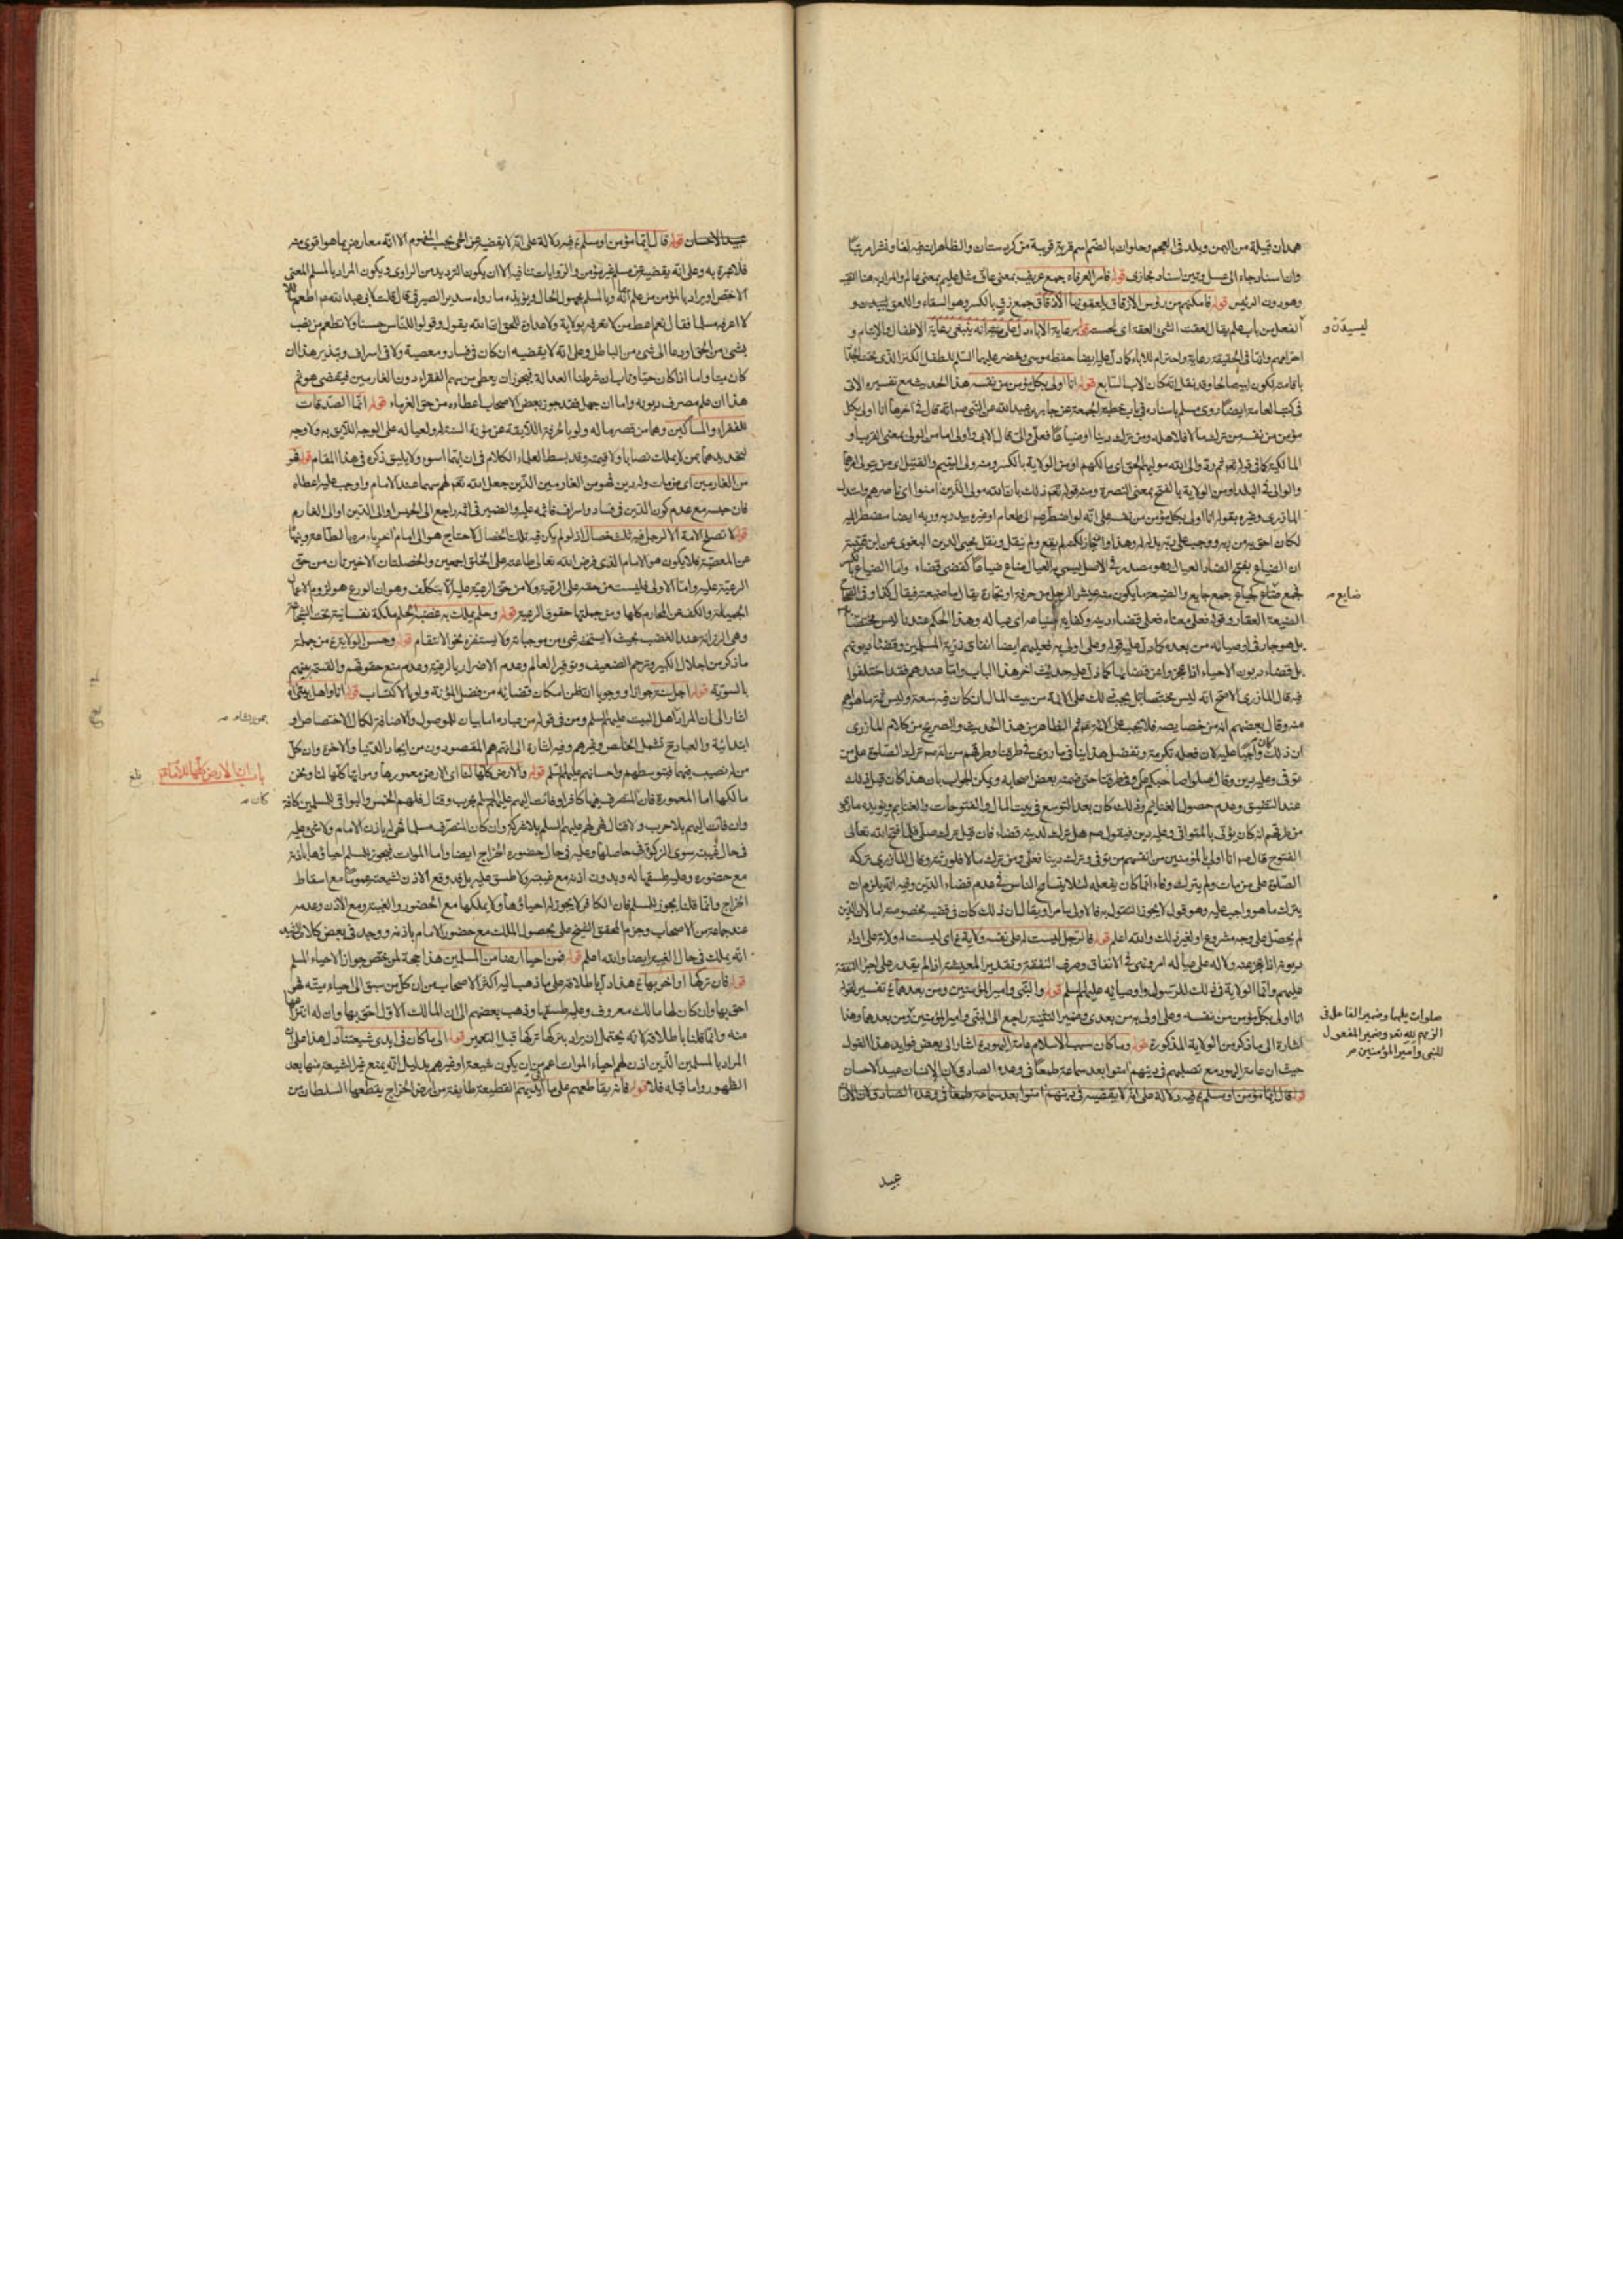 همدان قبيلة من اليمن وبلد فى العجم وحلوان بالضم اسم قرية قريبة من كردستان والظاهر ان فيه لفا ونشرا مرتبا
وان اسناد جاء الى عسل وتين اسناد مجازى قوله فامر العرفاء جمع عريف بمعنى عارف مثل عليم بمعنى عالم والمراد به هنا النقيب
وهو دون الرئيس قوله فامكنهم من رؤس الازقاق يلعقونها الازقاق جمع زق بالكسر وهو السقاء واللعق ليسيدن و
الفعل من باب علم يقال لعقت الشئ العقه اى لحسته قوله برعاية الاباء دل على انه ينبغى رعاية الاطفال والايتام و
احترامهم وانها فى الحقيقة رعاية واحترام للاباء كما دل عليه ايضا حفظ موسى وخضر عليهما السلم للطفل الكنز الذى تحت الجدار
باقامته لكون ابيه صالحا وقد نقل انه كان الاب السابع قوله انا اولى بكل مؤمن من نفسه هذا الحديث مع تفسيره الاتى
فى كتب العامة ايضا روى مسلم باسناده فى باب خطبة الجمعة عن جابر بن عبدالله عن النبى ص انه قال فى اخرها انا اولى بكل
مؤمن من نفسه من ترك مالا فلاهله ومن ترك دينا او ضياعا فعلى والى قال الابى واولى اما من الولى بمعنى القرب او
المالكية كما فى قوله تعه ثم ردوا الى الله موليهم الحق اى مالكهم او من الولاية بالكسر ومنه ولى اليتيم والقتيل اى من يتولى امرهما
والوالى فى البلد او من الولاية بالفتح بمعنى النصرة ومنه قوله تعه ذلك بان الله مولى الذين امنوا اى ناصرهم واستدل
المازرى وغيره بقوله انا اولى بكل مؤمن من نفسه على انه لو اضطر هو الى طعام او غيره بيد ربه وربه ايضا مضطر اليه
لكان احق به من ربه ووجب على ربه بذله له وهذا وان جاز لكنه لم يقع ولم ينقل ونقل محيى الدين البغوى عن ابن قتيبة
ان الضياع بفتح الضاد العيال فهو مصدر فى الاصل يسمى به العيال ضاع ضياعا كقضى قضاء واما الضياع بالكسر
فجمع ضائع كجياع جمع جايع والضيعة ما يكون منه عيش الرجل من حرفة او تجارة يقال ما ضيعتك فيقال كذا وفى الصحاح
الضيعة العقار وقوله فعلى معناه فعلى قضاء دينه وكفاية ضياعه اى عياله وهذا الحكم عندنا ليس مختصا به
بل هو جار فى اوصيائه من بعده كما دل عليه قوله وعلى اولى به فعليهم ايضا انفاق ذرية المسلمين وقضاء ديونهم
بل قضاء ديون الاحياء اذا عجزوا عن قضائها كما دل عليه حديث اخر هذا الباب واما عندهم فقد اختلفوا
فيه قال المازرى الاصح انه ليس مختصا به بل يجب ذلك على الائمة من بيت المال ان كان فيه سعة وليس ثمة ما هو اهم
منه وقال بعضهم انه من خصايصه فلا يجب على الائمة
ان ذلك كان واجبا عليه لان فعله تكرمة وتفضل هذا
توفى وعليه دين وقال صلوا على صاحبكم
عند التضييق وعدم حصول الغنايم وذلك كان بعد التوسع فى بيت المال والفتوحات والغنايم ويؤيده ما روى
من طرقهم انه كان يؤتى بالمتوفى وعليه دين فيقول ص هل ترك لدينه قضاء فان قيل ترك صلى فلما فتح الله تعالى
الفتوح قال ص انا اولى بالمؤمنين من انفسهم من توفى وترك دينا فعلى ومن ترك مالا فلورثته وقال المازرى تركه
الصلوة على من مات ولم يترك وفاء انما كان يفعله لئلا يتسامح الناس فى عدم قضاء الدين وفيه انه يلزم ان
يترك ما هو واجب عليه وهو قول لا يجوز التفوه به فالاولى ما مر او يقال ان ذلك كان فى قضية مخصوصة اما لان الدين
لم يحصل على وجه مشروع او لغير ذلك والله اعلم قوله فالرجل ليست له على نفسه ولاية اى ليست له ولاية على اداء
ديونه اذا عجز عنه ولا له على عياله امر ونهى فى الانفاق وصرف النفقة وتقدير المعيشة اذا لم يقدر على اجراء النفقة
عليهم وانما الولاية فى ذلك للرسول واوصيائه عليهم السلم قوله والنبى وامير المؤمنين ومن بعدهما تفسير لقوله
انا اولى بكل مؤمن من نفسه وعلى اولى به من بعدى وضمير التثنية راجع الى النبى وامير المؤمنين ومن بعدهما وهذا
اشارة الى ما ذكر من الولاية المذكورة قوله وما كان سبب الاسلام عامة اليهود اشار الى بعض فوايد هذا القول
حيث ان عامة اليهود مع تصلبهم فى دينهم امنوا بعد سماعه طمعا فى وعده الصادق لان الانسان عبيد الاحسان
ليسيدن و
ضايع ص
صلوات عليهما وضمير الفاعل فى
الزمهم لله تعه وضمير المفعول
للنبى وامير المؤمنين ص
عبيد
عبيد الاحسان قوله قال ايما مؤمن او مسلم فيه دلالة على انه لا يقضيه عن الحى بحسب المفهوم الا انه معارض بما هو اقوى منه
فلا عبرة به وعلى انه يقضيه عن مسلم غير مؤمن والروايات تنافيه الا ان يكون الترديد من الراوى ويكون المراد بالمسلم المعنى
الاخص او يراد بالمؤمن من علم ايمانه وبالمسلم مجهول الحال ويؤيده ما رواه سدير الصيرفى قال قلت لابى عبدالله ع اطعم سائلا
لا اعرفه مسلما فقال نعم اعط من لا تعرفه بولاية ولا عداوة للحق ان الله يقول وقولوا للناس حسنا ولا تطعم من نصب
بشئ من الحق او دعا الى شئ من الباطل وعلى انه لا يقضيه ان كان فى فساد ومعصية ولا فى اسراف وتبذير هذا ان
كان ميتا واما اذا كان حيا وتاب ان شرطنا العدالة فيجوز ان يعطى من سهم الفقراء دون الغارمين فيقضى هو ثم
هذا ان علم مصرف ديونه واما ان جهل فقد جوز بعض الاصحاب اعطاءه من حق الغرماء قوله انما الصدقات
للفقراء والمساكين وهما من قصر ماله ولو بالحرفة اللايقة عن مؤنة السنة له ولعياله على الوجه اللايق به ولا وجه
لتحديدهما بمن لا يملك نصابا ولا قيمته وقد بسط العلماء الكلام فى ان ايهما اسوء ولا يليق ذكره فى هذا المقام قوله فهو
من الغارمين اى من مات وله دين فهو من الغارمين الذين جعل الله تعه لهم سهما عند الامام واوجب عليه اعطاه
فان حبسه مع عدم كون الدين فى فساد واسراف فاثمه عليه والضمير فى اثمه راجع الى الحبس او الى الدين او الى الغارم
قوله لا تصلح الامة الا لرجل فيه ثلث خصال اذ لو لم يكن فيه تلك الخصال لاحتاج هو الى امام اخر يامره بالطاعة وينهاه
عن المعصية فلا يكون هو الامام الذى فرض الله تعالى طاعته على الخلق اجمعين والخصلتان الاخيرتان من حق
الرعية عليه واما الاولى فليست من حقه على الرعية ولا من حق الرعية عليه الا بتكلف وهو ان الورع هو لزوم الاعمال
الجميلة والكف عن المحارم كلها ومن جملتها حقوق الرعية قوله وحلم يملك به غضبه الحلم ملكة نفسانية تحت الشجاعة
وهى الرزانة عند الغضب بحيث لا يستخفه شئ من موجباته ولا يستفزه نحو الانتقام قوله وحسن الولاية من جملته
ما ذكر من اجلال الكبير وترحم الضعيف وتوقير العالم وعدم الاضرار بالرعية وعدم منع حقوقهم والقسم بينهم
بالسوية قوله اجل سنة جوازا او وجوبا ان تظن امكان قضائه من فضل المؤنة ولو بالاكتساب قوله انا واهل بيتى
اشار الى ان المراد اهل البيت عليهم السلم ومن فى قوله من عباده اما بيان للموصول والاضافة لكمال الاختصاص او
ابتدائية والعباد ح تشمل الخلص وغيرهم وفيه اشارة الى انهم هم المقصودون من ايجاد الدنيا والاخرة وان كل
من له نصيب فيهما فبتوسطهم واحسانهم عليهم السلم قوله والارض كلها لنا اى الارض معمورها ومواتها كلها لنا ونحن
مالكها اما المعمورة فان المتصرف فيها كافرا وفاءت اليهم عليهم السلم بحرب وقتال فلهم الخمس والبواقى للمسلمين كافة
وان فاءت اليهم بلا حرب ولا قتال فهى لهم عليهم السلم بلا شركة وان كان المتصرف مسلما فهى له باذن الامام ولا شئ عليه
فى حال غيبته سوى الزكوة فى حاصلها وعليه فى حال حضوره الخراج ايضا واما الموات فيجوز للمسلم احياؤها باذنه
مع حضوره وعليه طسقها له وبدون اذنه مع غيبته ولا طسق عليه بل قد وقع الاذن لشيعته عموما مع اسقاط
الخراج وانما قلنا يجوز للمسلم فان الكافر لا يجوز له احياؤها ولا يملكها مع الحضور والغيبة ومع الاذن وعدمه
عند جماعة من الاصحاب وجزم المحقق الشيخ على بحصول الملك مع حضور الامام باذنه ووجد فى بعض كلام المفيد
انه يملك فى حال الغيبة ايضا والله اعلم قوله فمن احيا ارضا من المسلمين هذا حجة لمن خص جواز الاحياء بالمسلم
قوله فان تركها او اخربها هذا دل باطلاقه على ما ذهب اليه اكثر الاصحاب من ان كل من سبق الى احياء ميتة فهى
احق بها وان كان لها مالك معروف وعليه طسقها وذهب بعضهم الى ان المالك الاول احق بها وان له انتزاعها
منه وانما قلنا باطلاقه لانه يحتمل ان يراد بتركها تركها قبل التعمير قوله الى ما كان فى ايدى شيعتنا دل هذا على ان
المراد بالمسلمين الذين اذن لهم احياء الموات اعم من ان يكون شيعة او غيرهم بدليل انه يمنع غير الشيعة منها بعد
الظهور واما قبله فلا قوله فانه يقاطعهم على ما فى ايديهم القطيعة طايفة من ارض الخراج يقطعها السلطان من
باب ان الارض كلها للامام
كان ص
بلغ